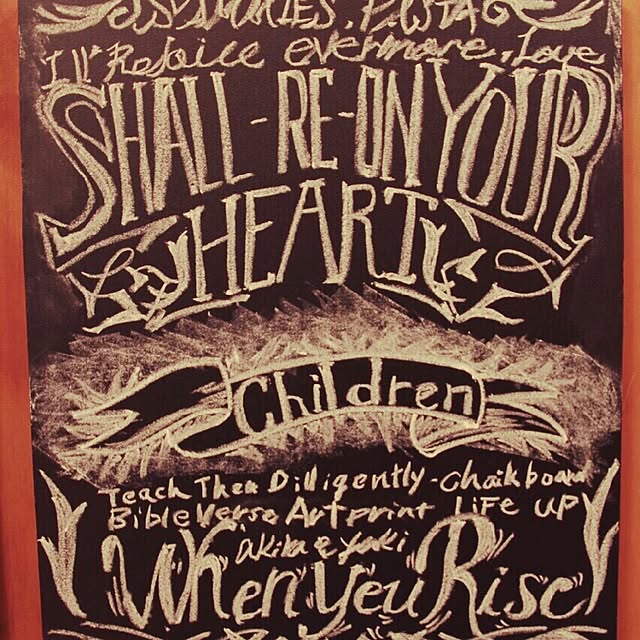 I'll Rejoice evermore. Love
SHALL-RE-ON YOUR
HEART
Children
Teach Then Dilligently-Chalkboard
Bible Verse Artprint LiFe up
akika e yuki
When You Rise